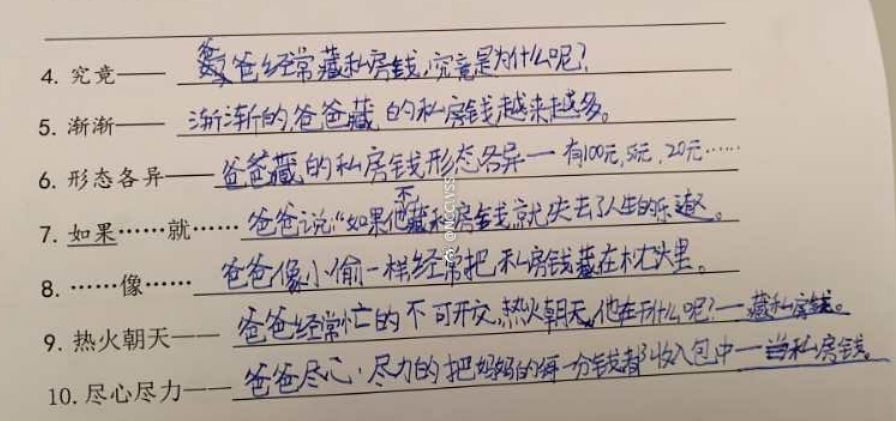 4. 究竟—— 爸爸经常藏私房钱,究竟是为什么呢?
5. 渐渐—— 渐渐的,爸爸藏的私房钱越来越多。
6. 形态各异—— 爸爸藏的私房钱形态各异一有100元,5元,20元……
7. 如果……就…… 爸爸说:“如果他不藏私房钱,就失去了人生的乐趣。
8. ……像…… 爸爸像小偷一样经常把私房钱藏在枕头里。
9. 热火朝天—— 爸爸经常忙的不可开交,热火朝天,他在干什么呢?一藏私房钱。
10. 尽心尽力—— 爸爸尽心尽力的把妈妈的每一分钱都收入包中一当私房钱。